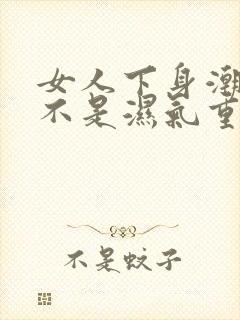 女人下身潮
不是濕氣重
不是蚊子